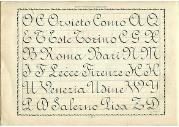 O C Orvieto Como A Q
E T Coste Torino C G X
B Roma Bari N M
I F Lecce Firenze H K
U Venezia Udine W Y
L D Salerno Pisa Z D